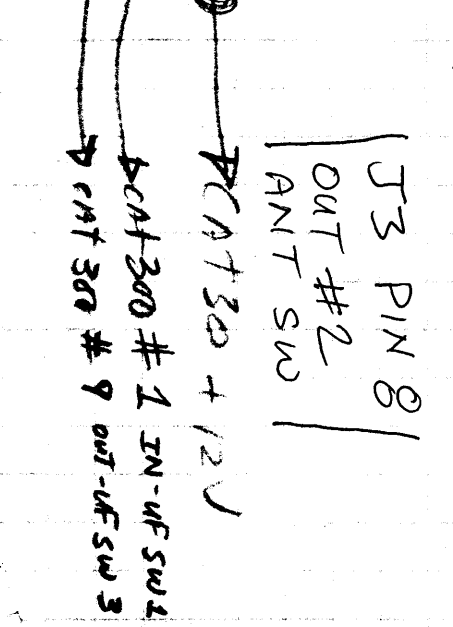 J3 PIN 8
OUT #2
ANT SW
CAT30 + 12V
CAT 300 # 1 IN-UF SW
CAT 300 # 9 OUT-UF SW 3